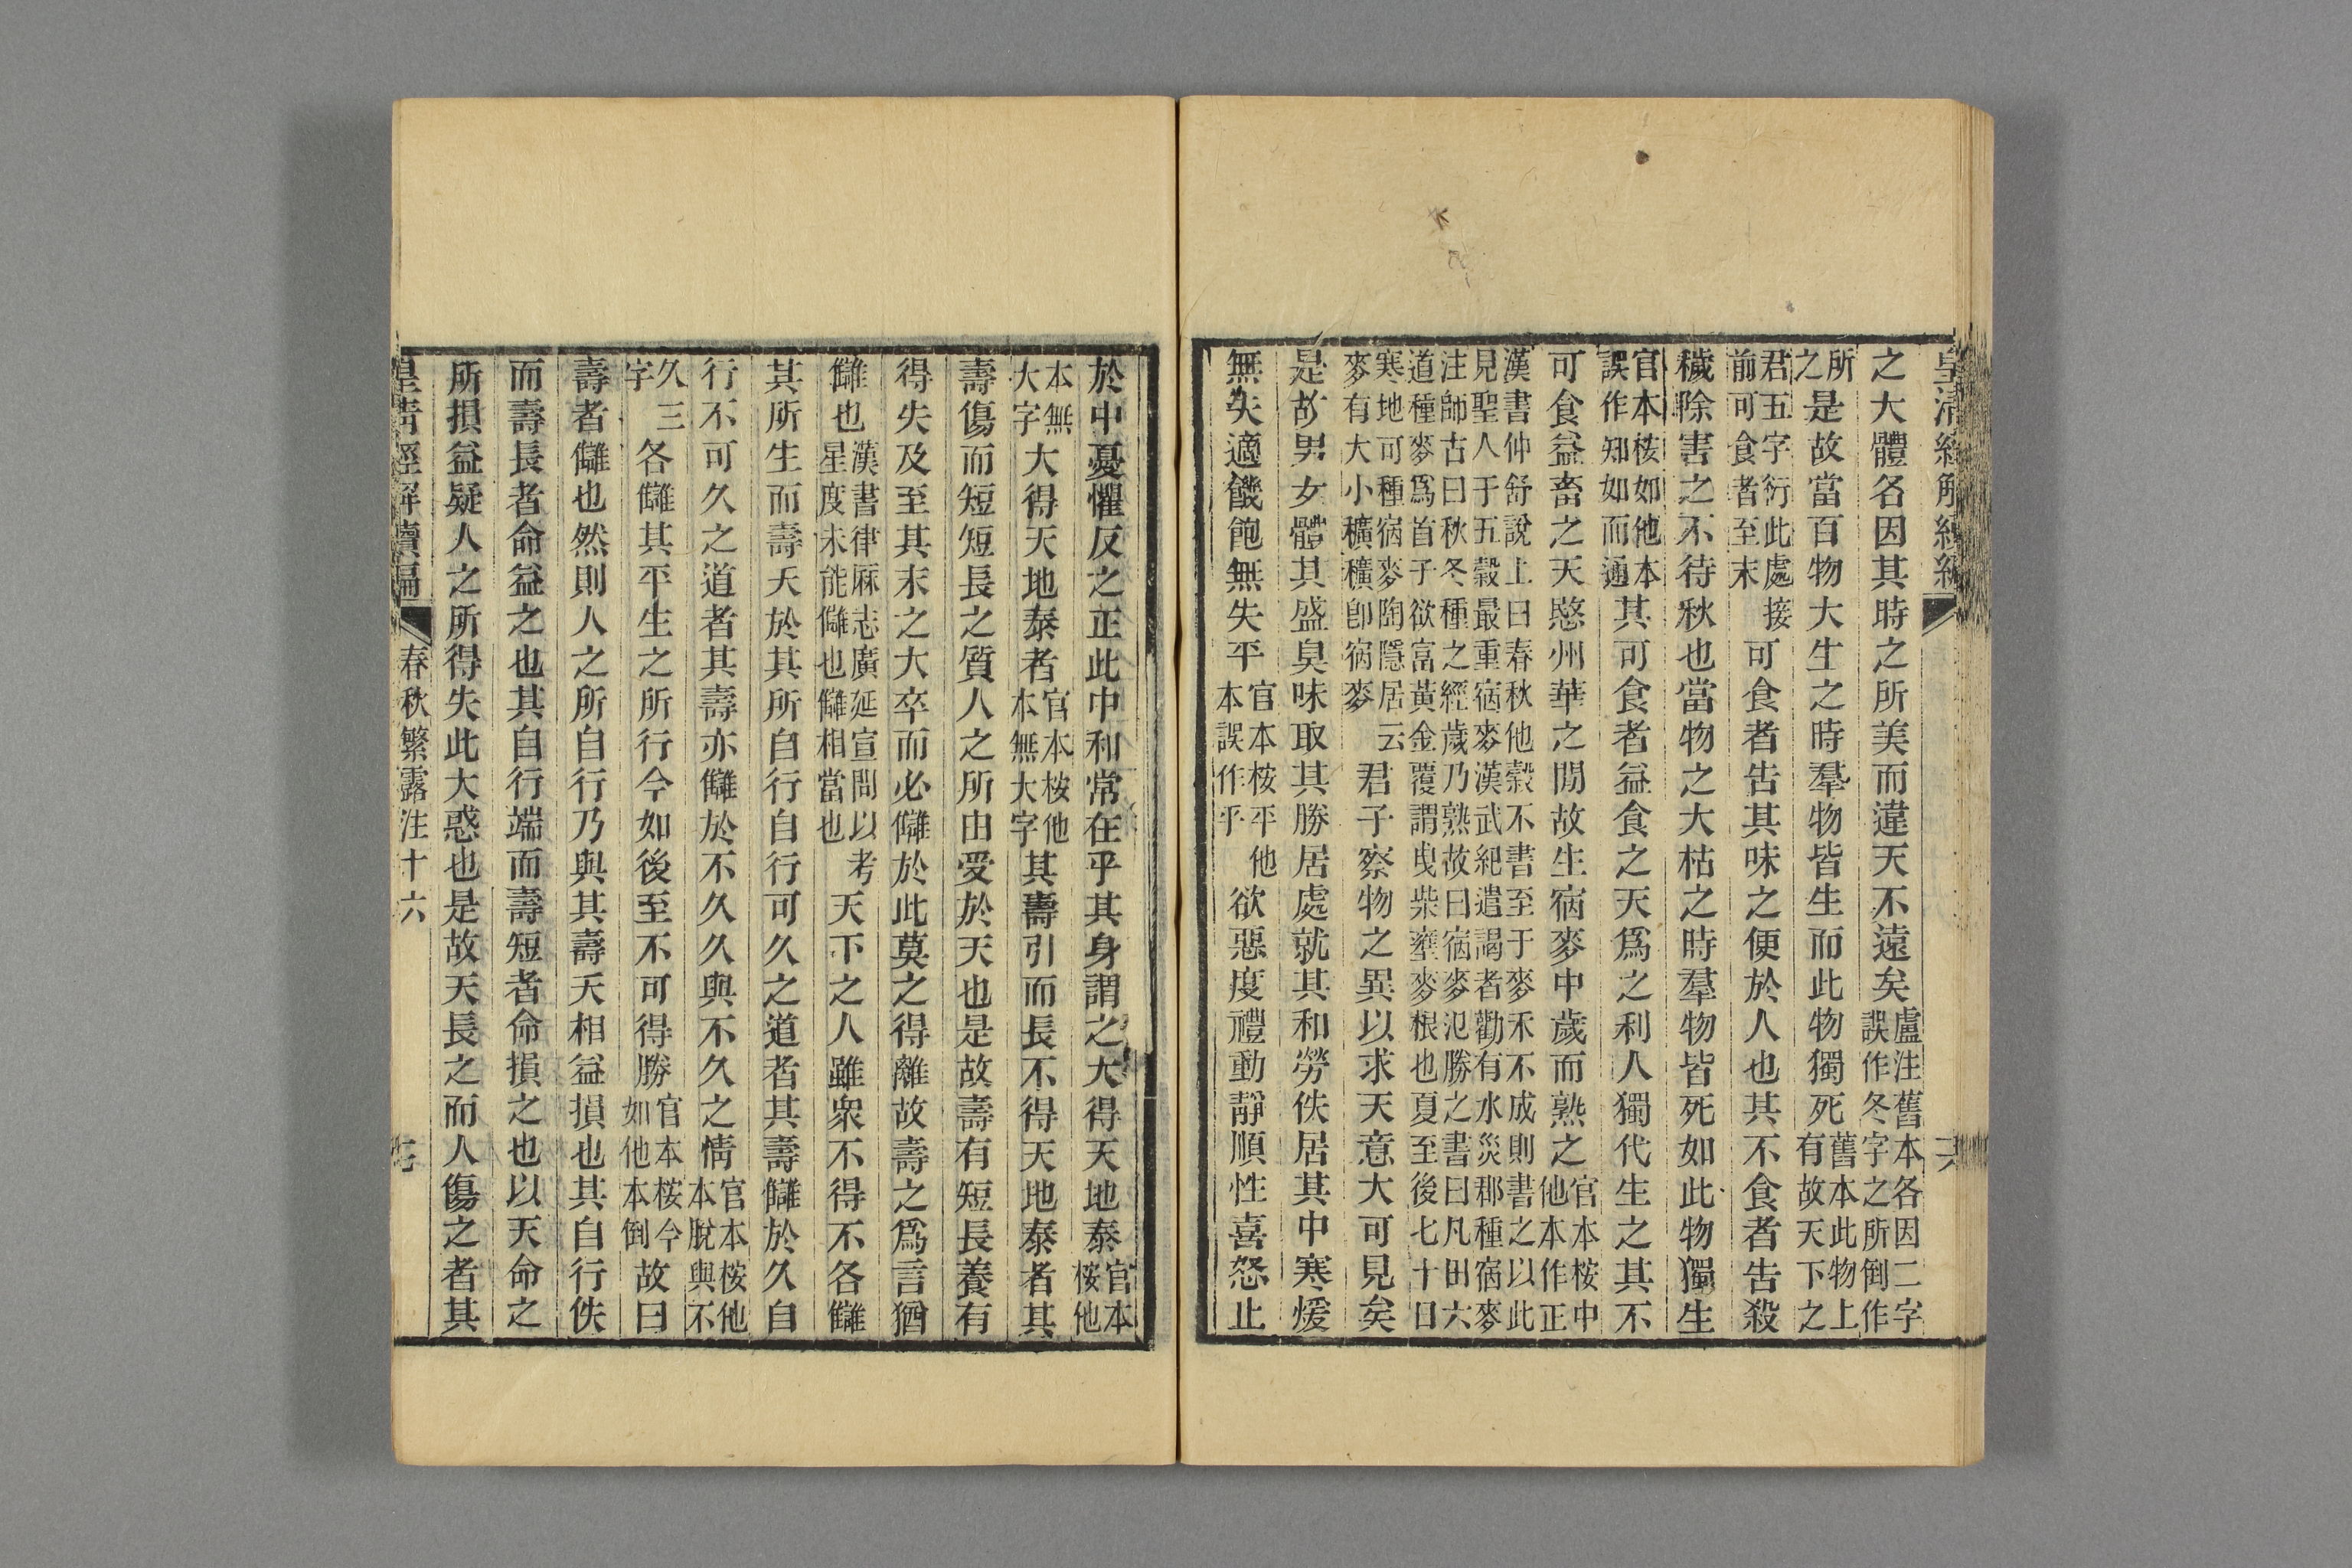 皇清經解續編
之大體各因其時之所美而違天不遠矣盧注舊本各因二字誤作冬字之所倒作
所之是故當百物大生之時羣物皆生而此物獨死舊本此物上有故天下之
君五字衍此處接前可食者至末可食者告其味之便於人也其不食者告殺
穢除害之不待秋也當物之大枯之時羣物皆死如此物獨生
官本桉如他本誤作知如而通其可食者益食之天爲之利人獨代生之其不
可食益畜之天愍州華之閒故生宿麥中歲而熟之官本桉中他本作正
漢書仲舒說上曰春秋他穀不書至于麥禾不成則書之以此見聖人于五穀最重宿麥漢武紀遣謁者勸有水災郡種宿麥
注師古曰秋冬種之經歲乃熟故曰宿麥氾勝之書曰凡田六道種麥爲首子欲富黃金覆謂曳柴壅麥根也夏至後七十日
寒地可種宿麥陶隱居云麥有大小穬穬卽宿麥君子察物之異以求天意大可見矣
是故男女體其盛臭味取其勝居處就其和勞佚居其中寒煖
無失適饑飽無失平官本桉平他本誤作乎欲惡度禮動靜順性喜怒止
於中憂懼反之正此中和常在乎其身謂之大得天地泰官本桉他
本無大字大得天地泰者官本桉他本無大字其壽引而長不得天地泰者其
壽傷而短短長之質人之所由受於天也是故壽有短長養有
得失及至其末之大卒而必讎於此莫之得離故壽之爲言猶
讎也漢書律厤志廣延宣問以考星度未能讎也讎相當也天下之人雖衆不得不各讎
其所生而壽夭於其所自行自行可久之道者其壽讎於久自
行不可久之道者其壽亦讎於不久久與不久之情官本桉他本脫與不
久三字各讎其平生之所行今如後至不可得勝官本桉今如他本倒故曰
壽者讎也然則人之所自行乃與其壽夭相益損也其自行佚
而壽長者命益之也其自行端而壽短者命損之也以天命之
所損益疑人之所得失此大惑也是故天長之而人傷之者其
皇清經解續編 春秋繁露注十六